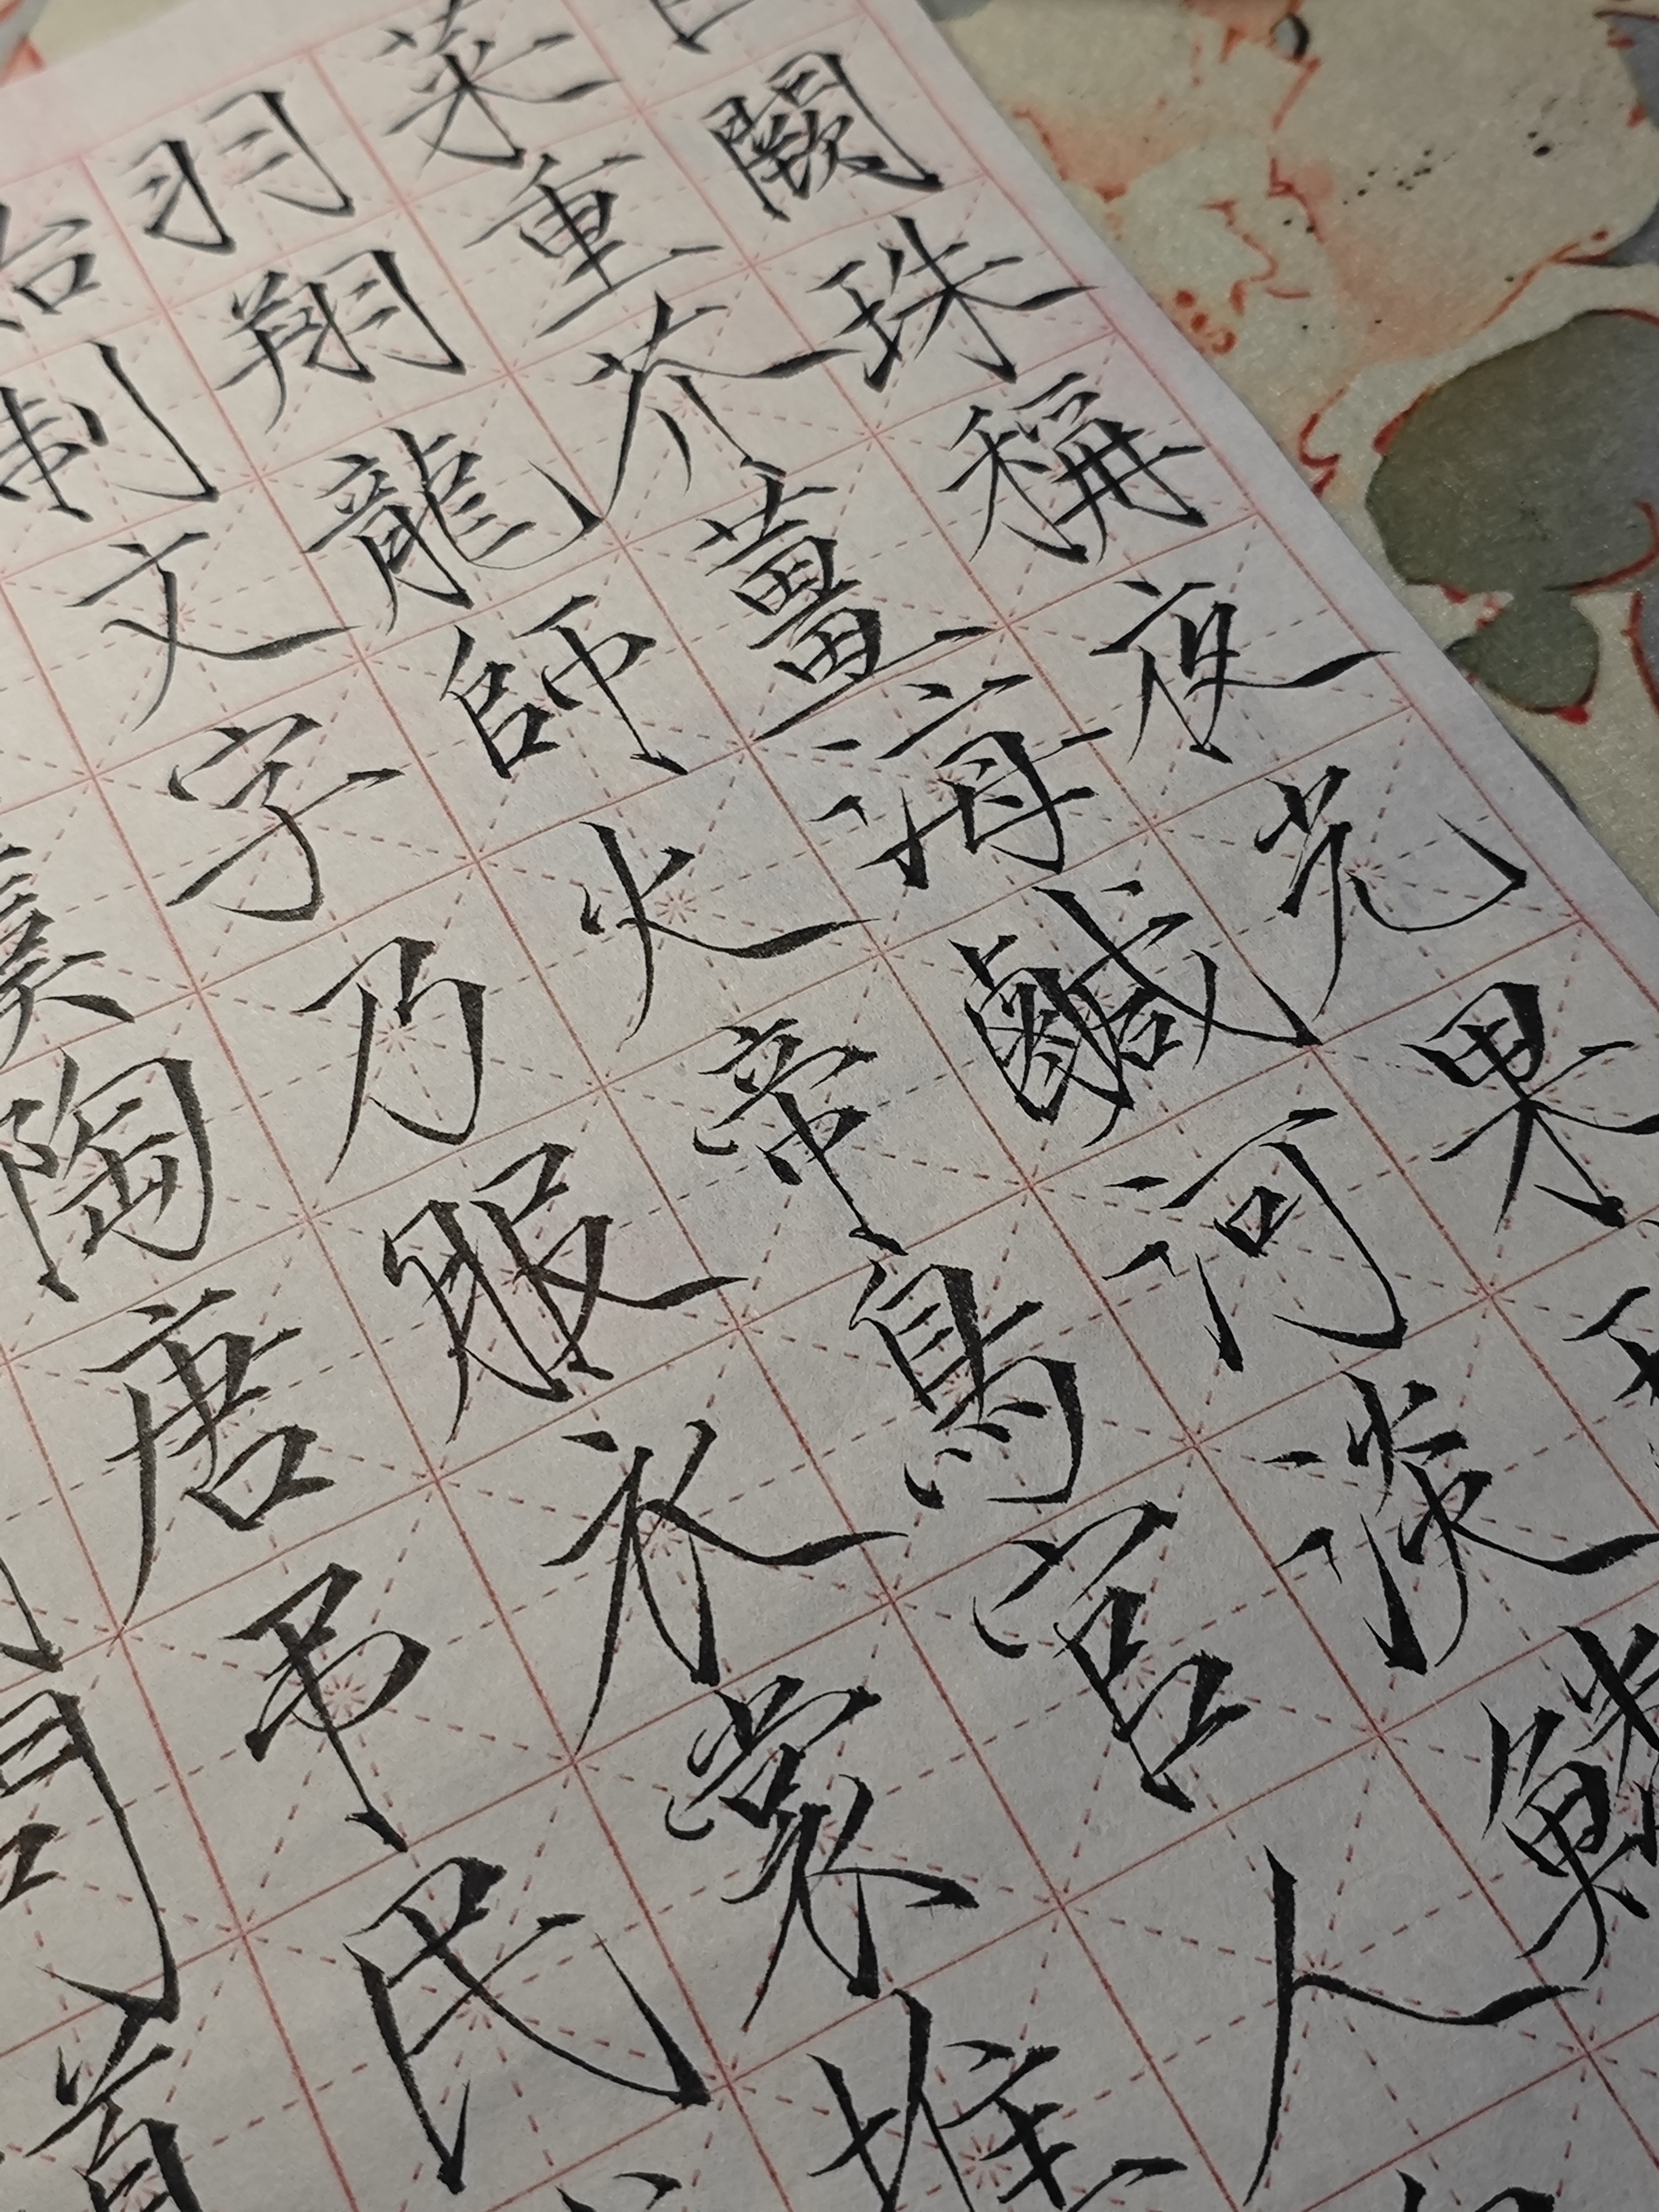 闕珠稱夜光果
菜重芥薑海鹹河淡鱗
羽翔龍師火帝鳥官人
始制文字乃服衣裳推
虞陶唐弔民